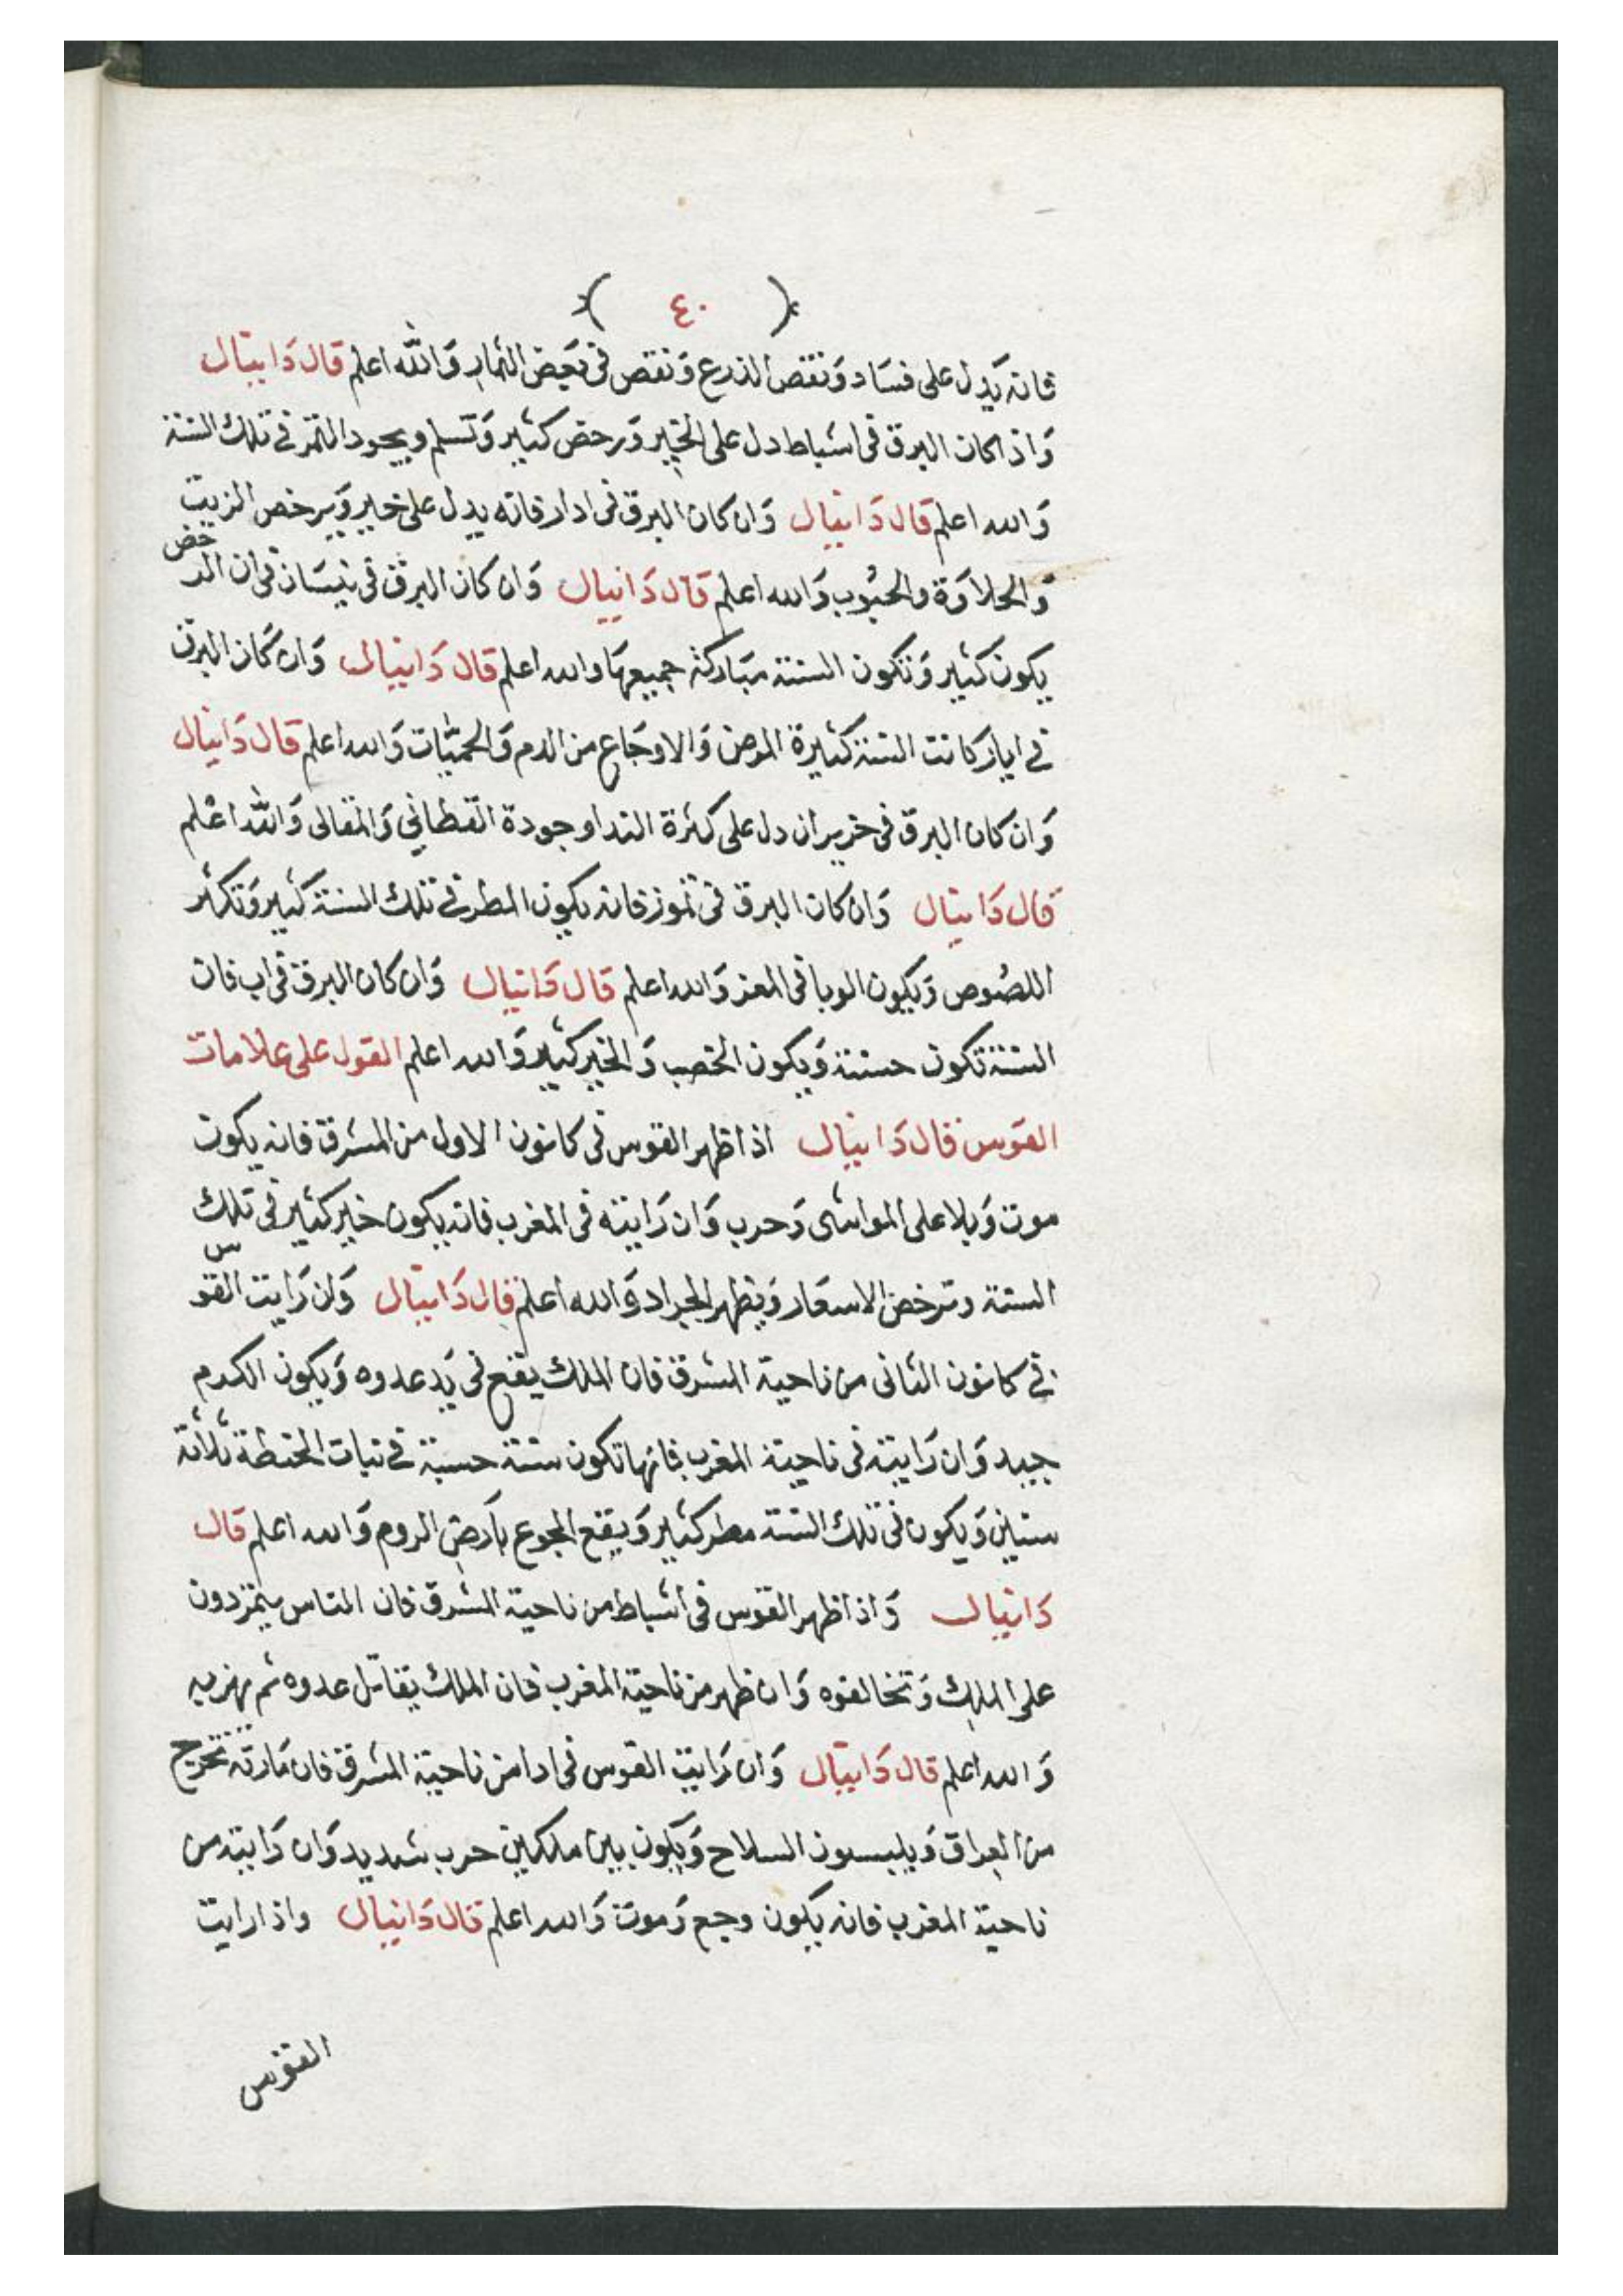 ( ٤٠ )
فانه يدل على فساد ونقص الزرع ونقص فى بعض الثمار والله اعلم قال دانيال
واذا كان البرق فى اشباط دل على الخير ورخص كثير وتسلم ويجود الثمر فى تلك السنة
والله اعلم قال دانيال وان كان البرق فى ادار فانه يدل على خير ويرخص الزيت
والحلاوة والحبوب والله اعلم قال دانيال وان كان البرق فى نيسان فان الرخص
يكون كثير وتكون السنة مباركة جميعها والله اعلم قال دانيال وان كان البرق
فى ايار كانت السنة كثيرة المرض والاوجاع من الدم والحميات والله اعلم قال دانيال
وان كان البرق فى خريران دل على كثرة الندا وجودة القطاني والمقالى والله اعلم
قال دانيال وان كان البرق فى تموز فانه يكون المطر فى تلك السنة كثير وتكثر
اللصوص ويكون الوبا فى المعز والله اعلم قال دانيال وان كان البرق فى اب فان
السنة تكون حسنة ويكون الخصب والخير كثير والله اعلم القول على علامات
القوس قال دانيال اذا ظهر القوس فى كانون الاول من المشرق فانه يكون
موت وبلا على المواشى وحرب وان رايته فى المغرب فانه يكون خير كثير فى تلك
السنة وترخص الاسعار ويظهر الجراد والله اعلم قال دانيال وان رايت القوس
فى كانون الثانى من ناحية المشرق فان الملك يقع فى يد عدوه ويكون الكرم
جيد وان رايته فى ناحية المغرب فانها تكون سنة حسنة فى نبات الحنطة ثلاثة
سنين ويكون فى تلك السنة مطر كثير ويقع الجوع بارض الروم والله اعلم قال
دانيال واذا ظهر القوس فى اشباط من ناحية المشرق فان الناس يتمردون
على الملك وتخالفوه وان ظهر من ناحية المغرب فان الملك يقاتل عدوه ثم يهزمه
والله اعلم قال دانيال وان رايت القوس فى ادا من ناحية المشرق فان مارقة تخرج
من العراق ويلبسون السلاح ويكون بين ملكين حرب شديد وان رايته من
ناحية المغرب فانه يكون وجع وموت والله اعلم قال دانيال واذا رايت
القوس